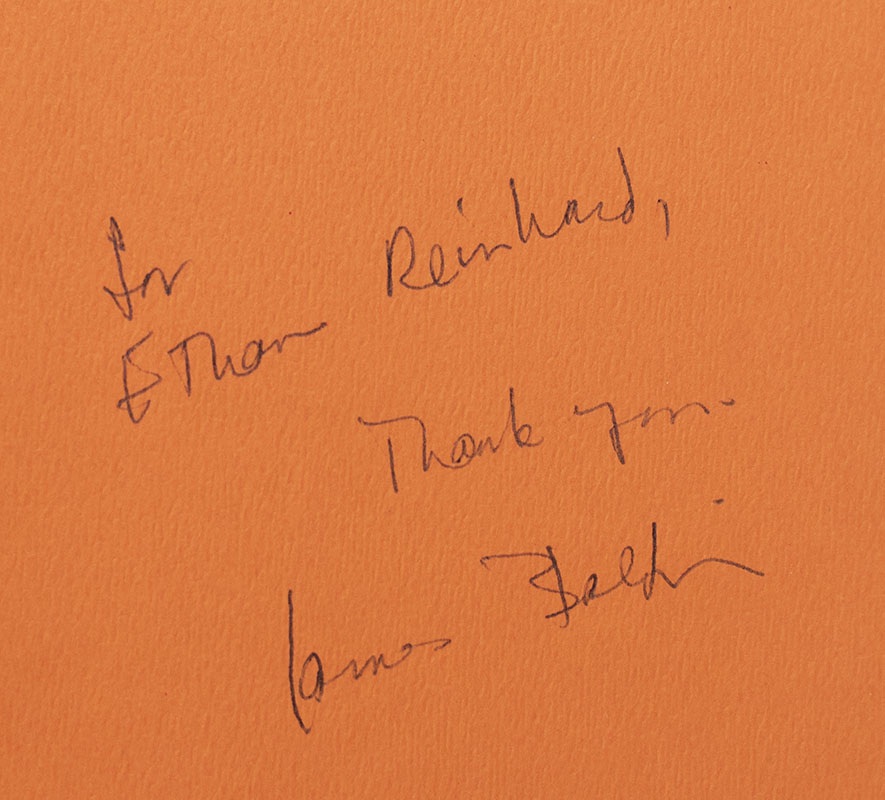 for
Ethan Reinhard,
Thank you.
James Baldwin